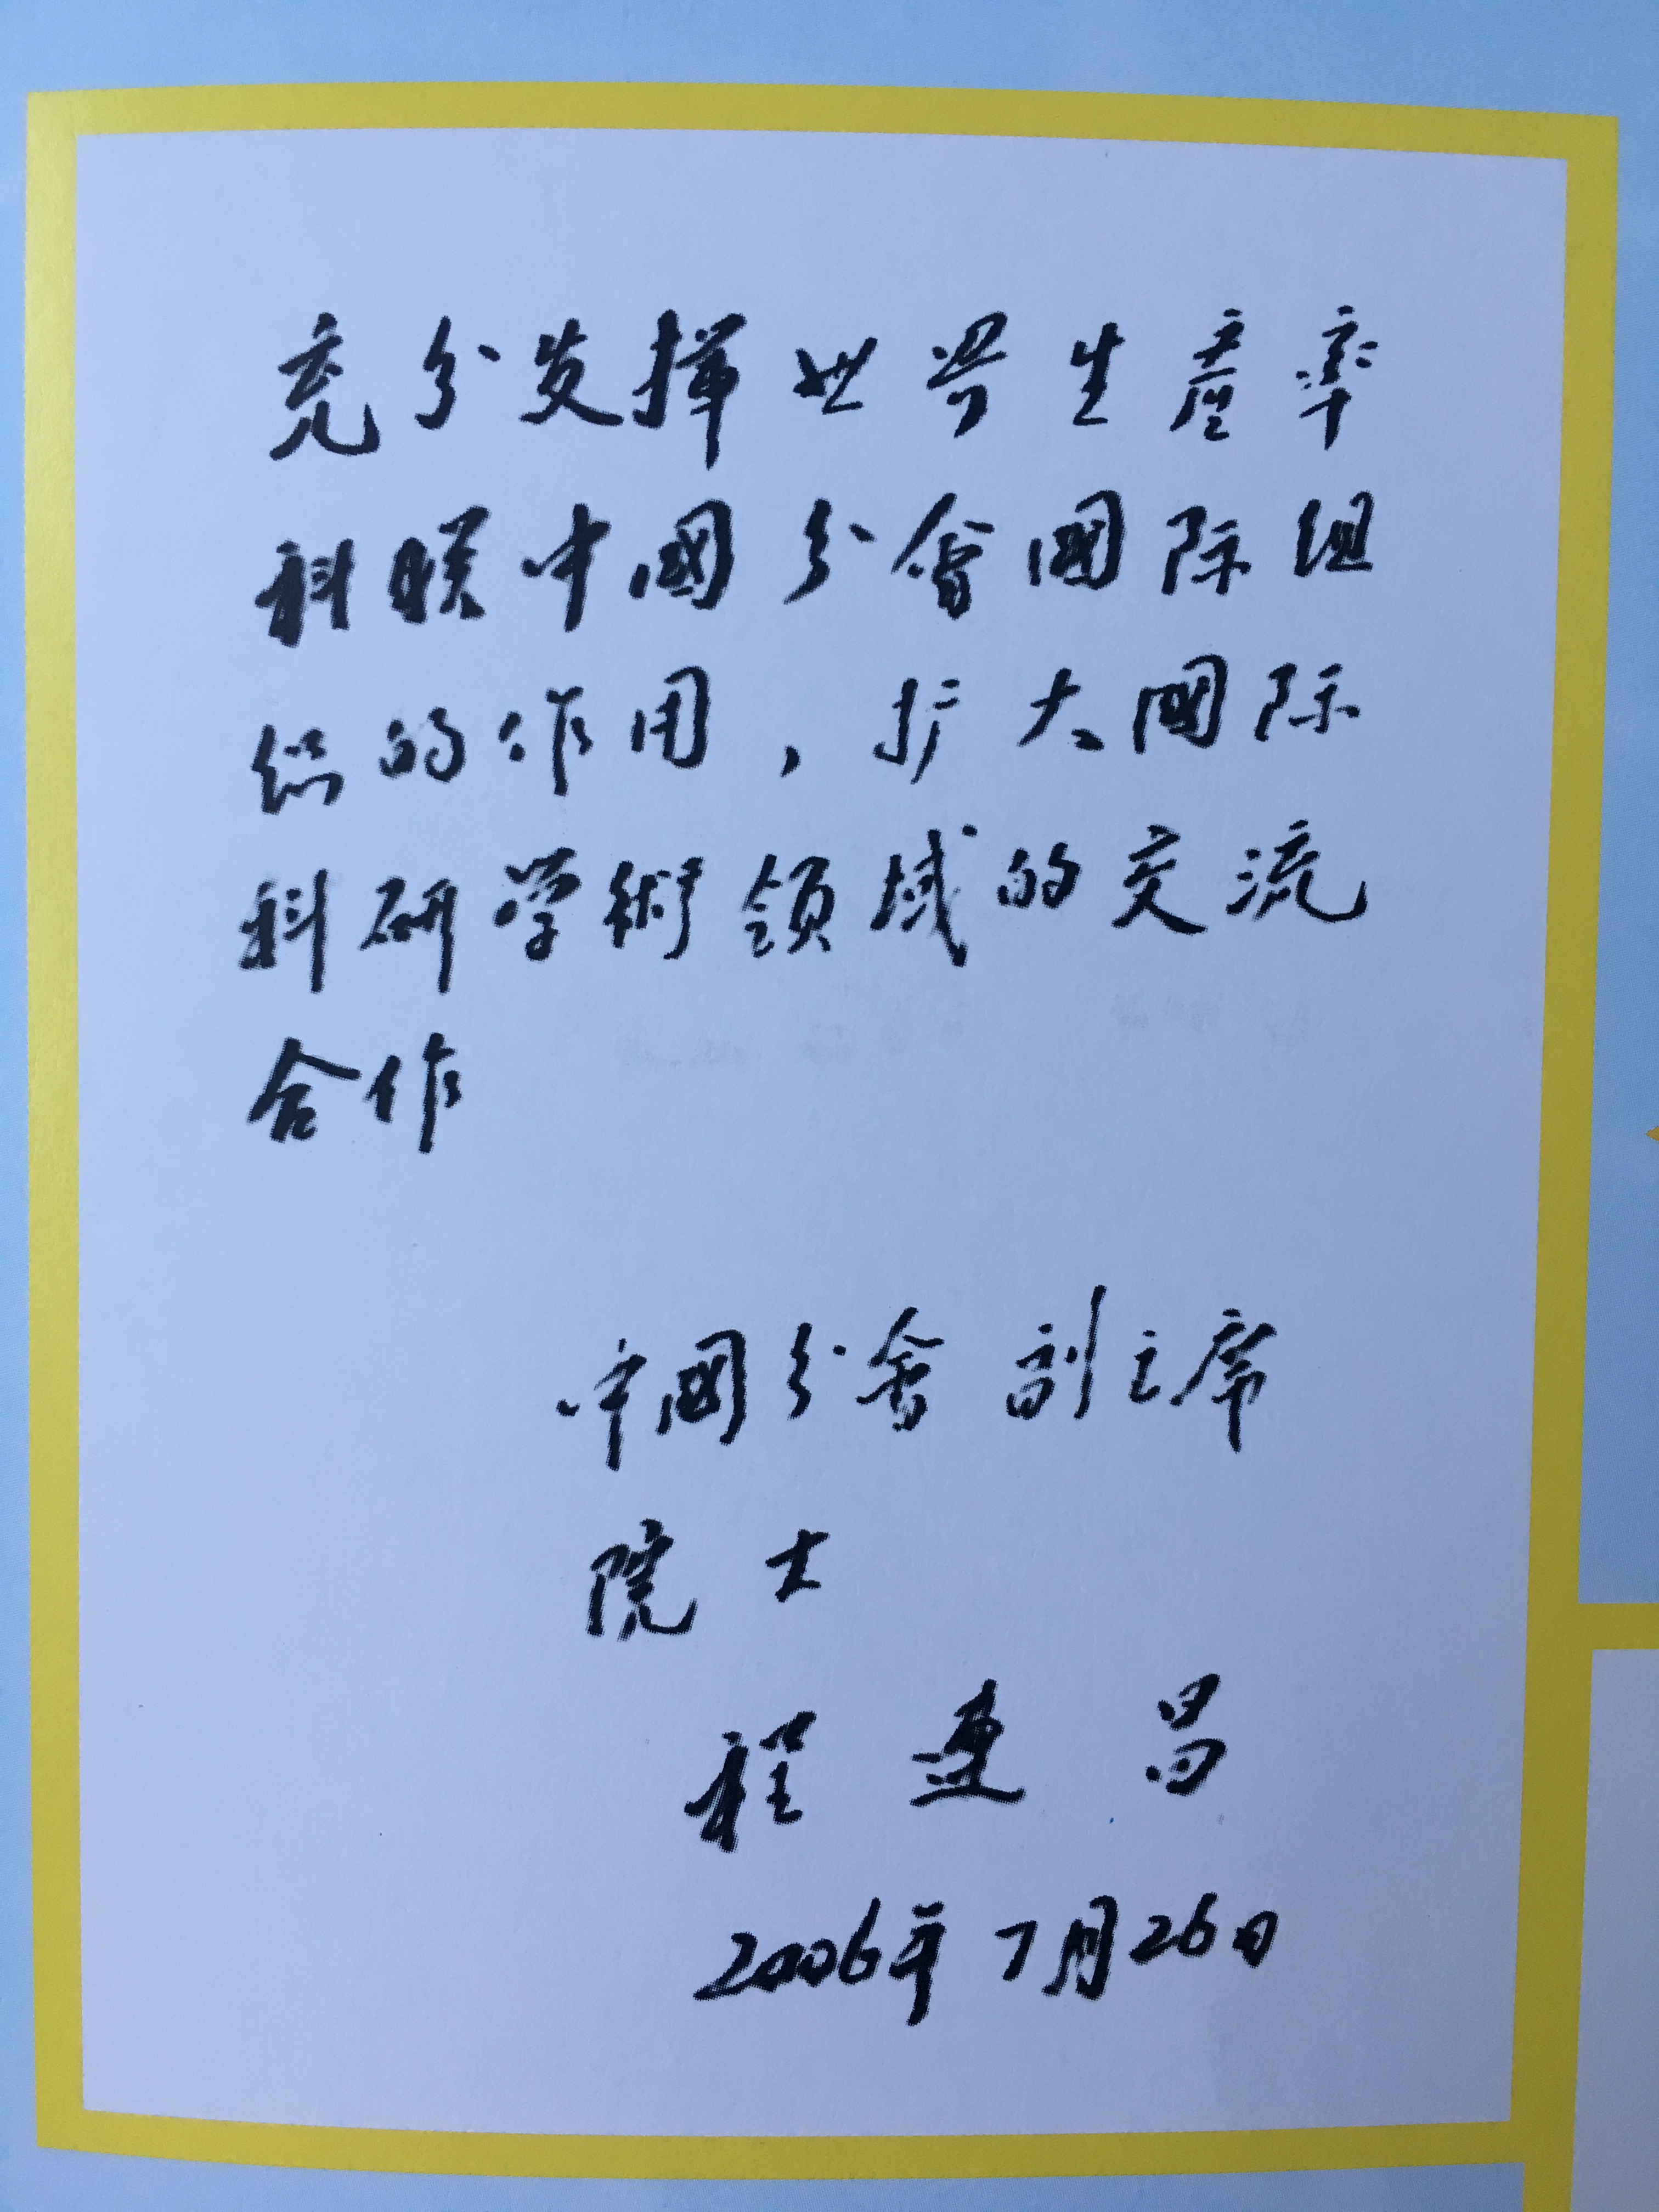 充分发揮世界生產率
科联中國分會國际组
织的作用，扩大國际
科研学術领域的交流
合作
中國分會副主席
院士
程連昌
2006年7月26日